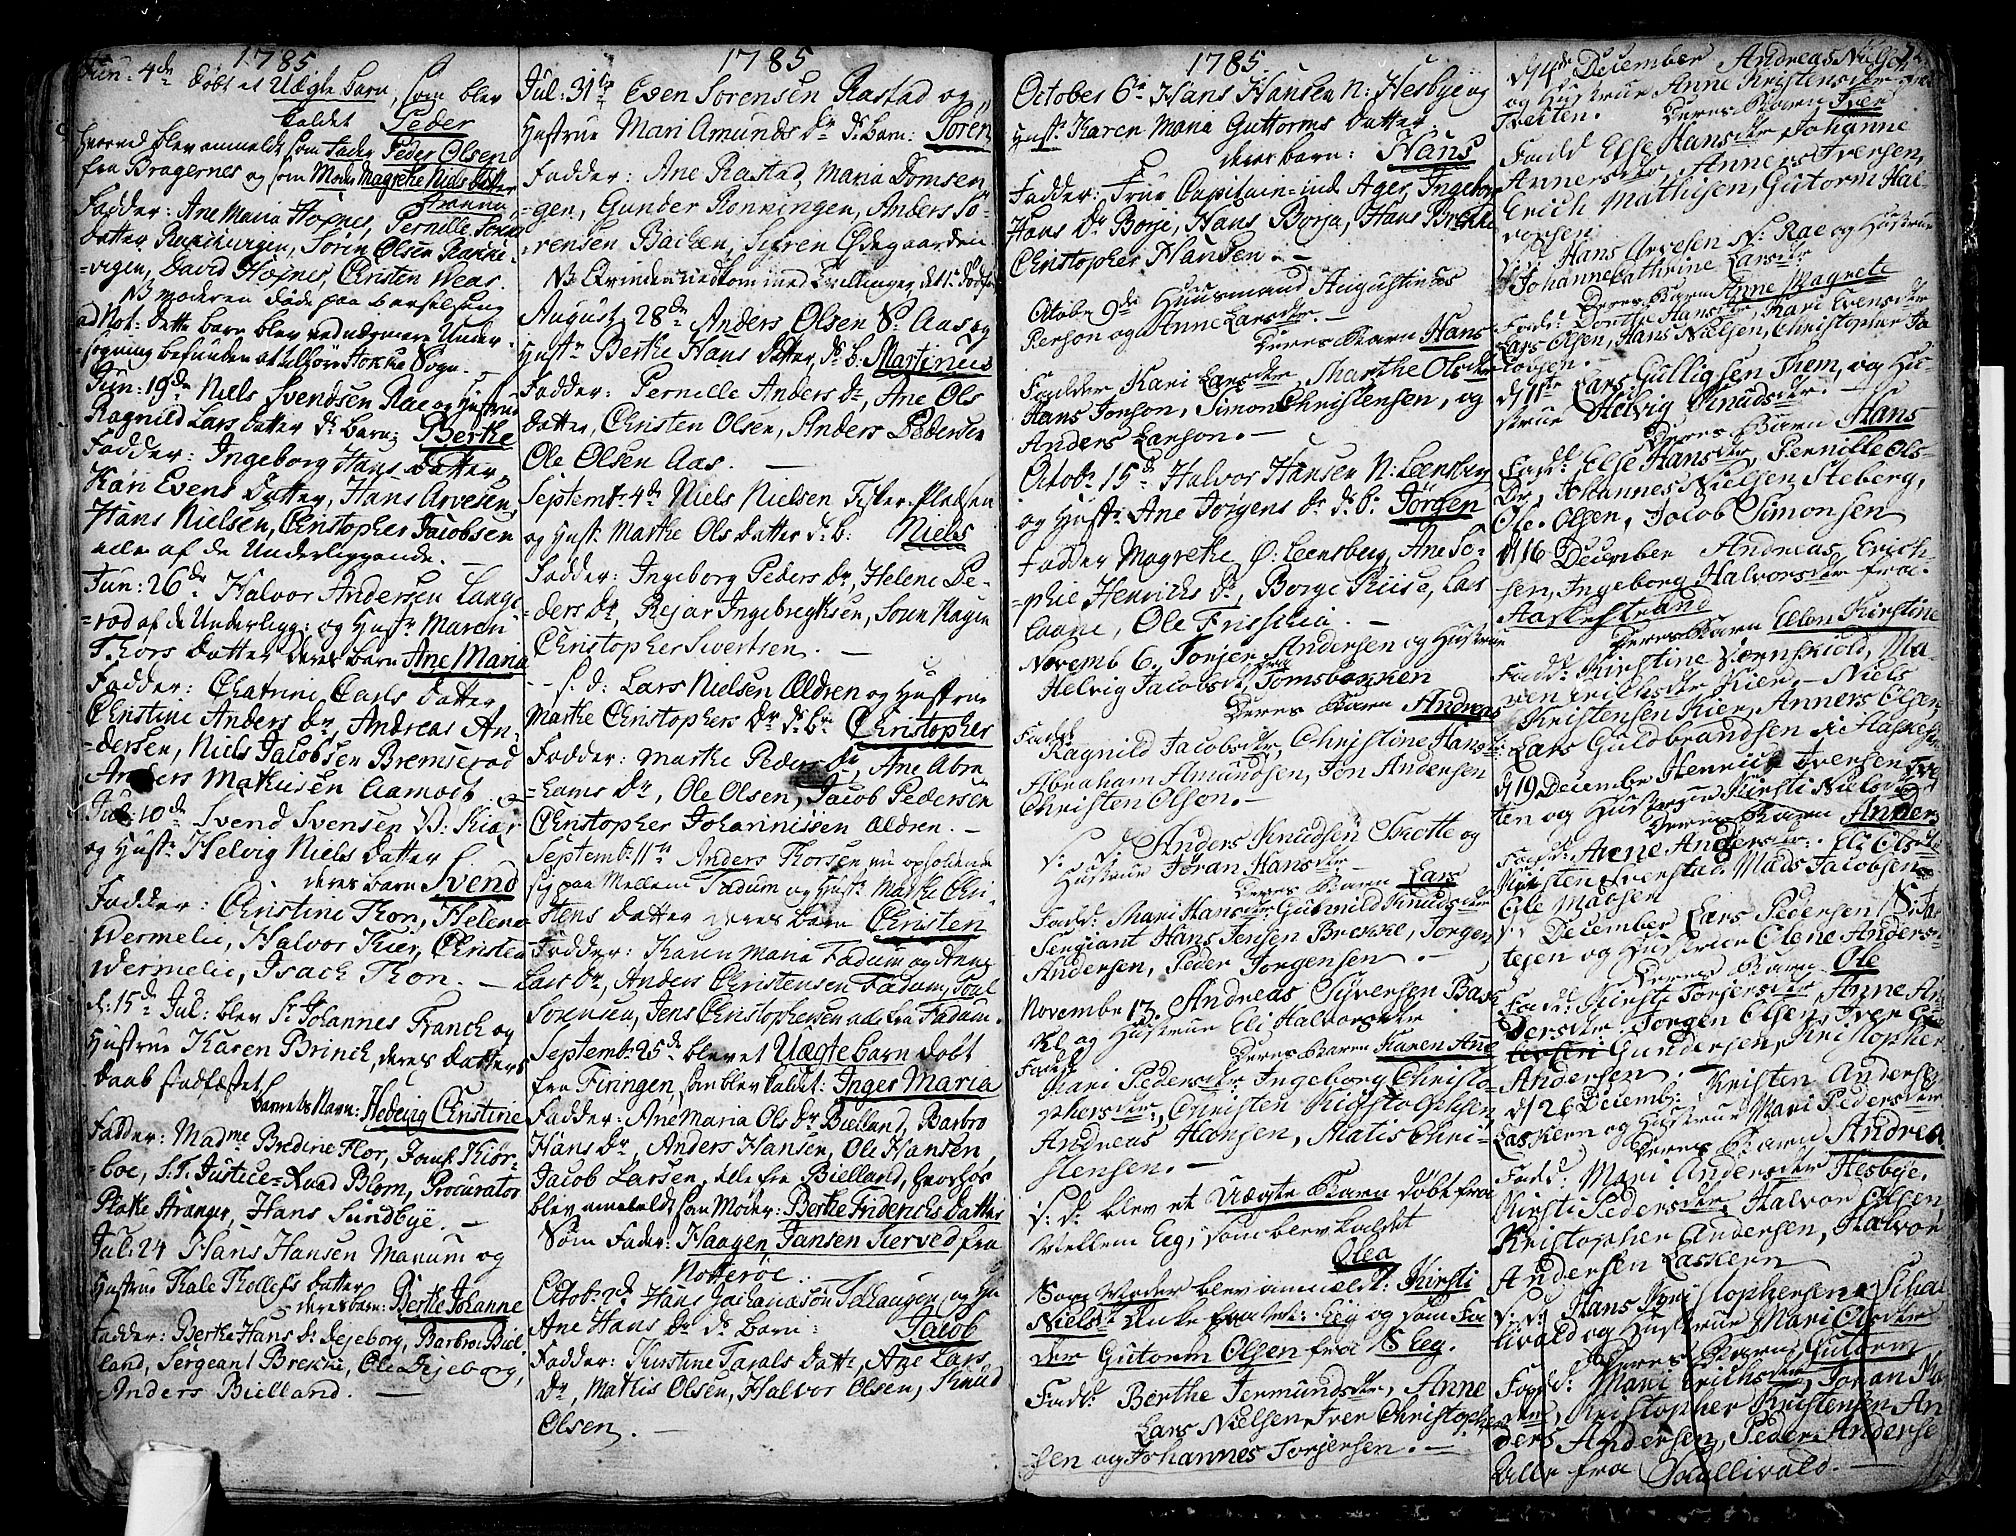 1785
Jun: 4de døbt et Uægte barn, som blev
kaldet Peder
herved blev anmeldt som Fader Peder Olsen
fra Bragernes og som Moder Magrethe Niels datter
Fadder: Ane Maria Hoxnes, Pernille Soren
datter, Sørin Olsen
vigen, David Hoxnes, Christen Weas.
NB moderen døde paa barselseng
ad Not: dette barn blev ved nærmere Under-
søgning befunden at tilhøre Stokke Sogn.
Jun: 19de Niels Svendsen Rae og Hustrue
Ragnild Lars datter Ds barn: Berthe
Fadder: Ingeborg Hans datter,
Kari Evens datter, Hans Arvesen,
Hans Nielsen, Christopher Jacobsen
alle af de Underliggende.
Jun: 26de Halvor Andersen Lange-
=rød af de Underligg: og Hustr: Maren
Thors datter deres barn Ane Maria
Fadder: Chatrine Carls datter
Christine Anders Dr, Andreas An-
dersen, Niels Jacobsen Bremserød
Anders Mathisen Aamodt
Jul: 10de Svend Svensen N: Kiær
og Hustr Helvig Niels datter
deres barn Svend
Fadder: Christine Thon, Helene
Wermelie, Halvor Kier, Christen
Wermelie, Isach Thon.
d: 15de Jul: blev Sr Johannes Franch og
Hustrue Karen Brinch, deres datters
daab stadfæstet
barnets Navn: Hedevig Christine
Fadder: Madme Bredine Flor, Jomf: Kiør-
boe, S.T. Justice=Raad Blom, Procurator
Plathe Stranger, Hans Sundbye.
Jul: 24 Hans Hansen Marum og
Hustrue Kale Thollefs datter
deres barn: Berthe Johanne
Fadder: Berthe Hans Dr Dejeborg, Barbro Biel-
land, Sergeant Brekke, Ole Dejeborg,
Anders Bielland.
1785
Jul: 31te Even Sørensen Rastad og
Hustrue Mari Amunds Dr Ds barn: Søren
Fadder: Ane Rastad, Maria Domsen
=gen, Gunder Rønningen, Anders Sø-
=rensen Bachen, Sefren Ødegaarden
NB Qvinden nedkom med Tvillinger det 1te dødfød
August 28de Anders Olsen N: Aas og
Hustr Berthe Hans datter, Ds b: Martinus
Fadder: Pernille Anders Dr, Ane Ols
datter, Christen Olsen, Anders Pedersen
Ole Olsen Aas.
Septemb: 4de Niels Nielsen Fisker-Pladsen
og Hust: Marthe Ols datter Ds b: Niels
Fadder: Ingeborg Peders Dr, Helene Pe-
ders Dr, Rejar Ingebregtsen, Sønn Hagen
Christopher Sivertsen.
s. d: Lars Nielsen Ældren og Hustrue
Marthe Christophers Dr Ds bn Christopher
Fadder: Marthe Peders Dr, Ane Abra
hams Dr, Ole Olsen, Jacob Pedersen
Christopher Johannissen Ældren.
Septemb: 11te Anders Thorsen nu opholdende
sig paa Mellem Fadum og Hust: Marthe Chri-
stens datter deres barn Christen
Fadder: Karen Maria Fadum og Anne
Lars Dr, Anders Christensen Fadum, Poul
Sørensen, Jens Christophersen alle fra Fadum.
Septemb: 25de blev et Uægte barn døbt
fra Firingen, som blev kaldet: Inger Maria
Fadder: Ane Maria Ols Dr Bielland, Barbro
Hans Dr, Anders Hansen, Ole Hansen,
Jacob Larsen, alle fra Bielland, hvorhos
blev anmeldt som Moder: Berthe Friderichs datter
Som Fader: Haagen Jansen Kierved fra
Notterøe.
Octob: 2de Hans Jochandsøn Felhaugen, og Hu
Ane Hans Dr Ds Barn: Jacob
Fadder: Kirstine Tarals datte, Ane Lars
Dr, Mathis Olsen, Halvor Olsen, Knud
Olsen.
1785
October 6te Hans Hansen N: Hesbye og
Hust: Karen Maria Guttorms datter
deres barn: Hans
Fadder: Frue Capitain=inde Ager, Ingeborg
Hans Dr Borje, Hans Borja, Hans Brekke
Christopher Hansen.
Octobr 9de Huusmand Augustinus
Person og Anne Larsdr
Deres Barn Hans
Fadder Kari Larsdr Marthe Olsdr
Hans Jonson, Simon Christensen, og
Anders Larson.
Octob: 15de Halvor Hansen N: Leensberg
og Hustr: Ane Jørgens Dr Ds b: Jørgen
Fadder Magrethe Ø: Leensberg, Ane So-
phie Henrichs Dr, Børge Riise, Lars
Laane, Ole
Novemb 6. Torjer Andersen og Hustrue
Helvig Jacobsdr fra Tomsbakken
Deres Barn Andreas
Fadd: Ragnild Jacobsdr Christine Hansdr
Abraham Amundsen, Jon Andersen
Christen Olson.
S: D: Anders Knudsen Trotte og
Hustrue Jøran Hansdr
Deres Barn Lars
Fadd: Mari Hansdr Gunnild Knudsdr
Sergiant Hans Jensen Brekke, Jorgen
Andersen, Peder Jorgensen.
Novembe 13. Andreas Syversen Bas
og Hustrue Eli Halvorsdr
Deres Barn Karen And
Fadd: Mari Pedersdr: Ingeborg Christo-
phersdr, Christen Kristophersen
Andreas Hansen, Matis Chri-
stensen.
S: D: blev et Uægte Barn døbt fra
Mellem Eeg, som blev kaldet
Olea
Som Moder blev anmældt: Kirsti
Nielsdr Enke fra M: Eeg og som Fa
der Gutorm Olsen fra S Eeg.
Fadd: Berthe Jermundsdr, Anne
Lars Nielsen Iver Christopher
sen og Johannes Torjersen.
d 4de December Andreas Nielsen
og Hustrue Anne Kristensdr fra
Tveiten. Deres Barn Iver
Fadd Else Hansdr Johanne
Annersdr, Anners Iversen,
Erich Mathisen, Gutorm Hal-
vorsen
S: D: Hans Arvesen N: Rae og Hustrue
Johannecathrine Larsdr
Deres Barn Anne Magrete
Fadd: Dorthe Hansdr, Kari Evensdr
Lars Olsen, Hans Nielsen, Christopher Ja
cobsen.
d 11te Lars Gulligsen Them, og Hu-
strue Helvig Knudsdr.
Deres Barn Hans
Fadd: Else Hansdr, Pernille Ols-
Dr, Johannes Nielsen Steberg,
Ole Olsen, Jacob Simonsen
d 16 December Andreas Erich-
sen, Ingeborg Halvorsdr fra
Aasgestrand
Deres Barn Ellen Kirstine
Fadd: Kirstine Ma-
ren Erichsdr Kier, Niels
Kristensen Kier, Anners Olsen
Lars Guldbrandsen
d 19 Decembe Henrich Iversen Tve
ten og Hustrue Kirsti Nielsdr
Deres Barn Anders
Fadd: Anne Andersdr: Eli Olsdr
Kristen Iverstad Mads Jacobsen
Ole Madsen
S: D: December Lars Pedersen S:
tejen og Hustrue Olene Anders-
Deres Barn Ole
Fadd: Kirsti Torjersdr, Anne An
dersdr Jorgen Olsen, Iver
Gundersen, Kristopher
Andersen.
d 26 Decemb: Kristen Andersen
Laskern og Hustrue Mari Pedersdr
Deres Barn Andrea
Fadd: Mari Andersdr Hesbye.
Kirsti Pedersdr, Halvor Olsen,
Kristopher Andersen, Halvor
Andersen Laskern
S: D: Hans Kristophersen Schal
livald og Hustrue Mari Olsdr
Deres Barn Gutorm
Fadd: Mari Erichsdr, Joran
dr, Kristopher Kristensen An
ders Andersen, Peder Anderse
Alle fra Skallivald.